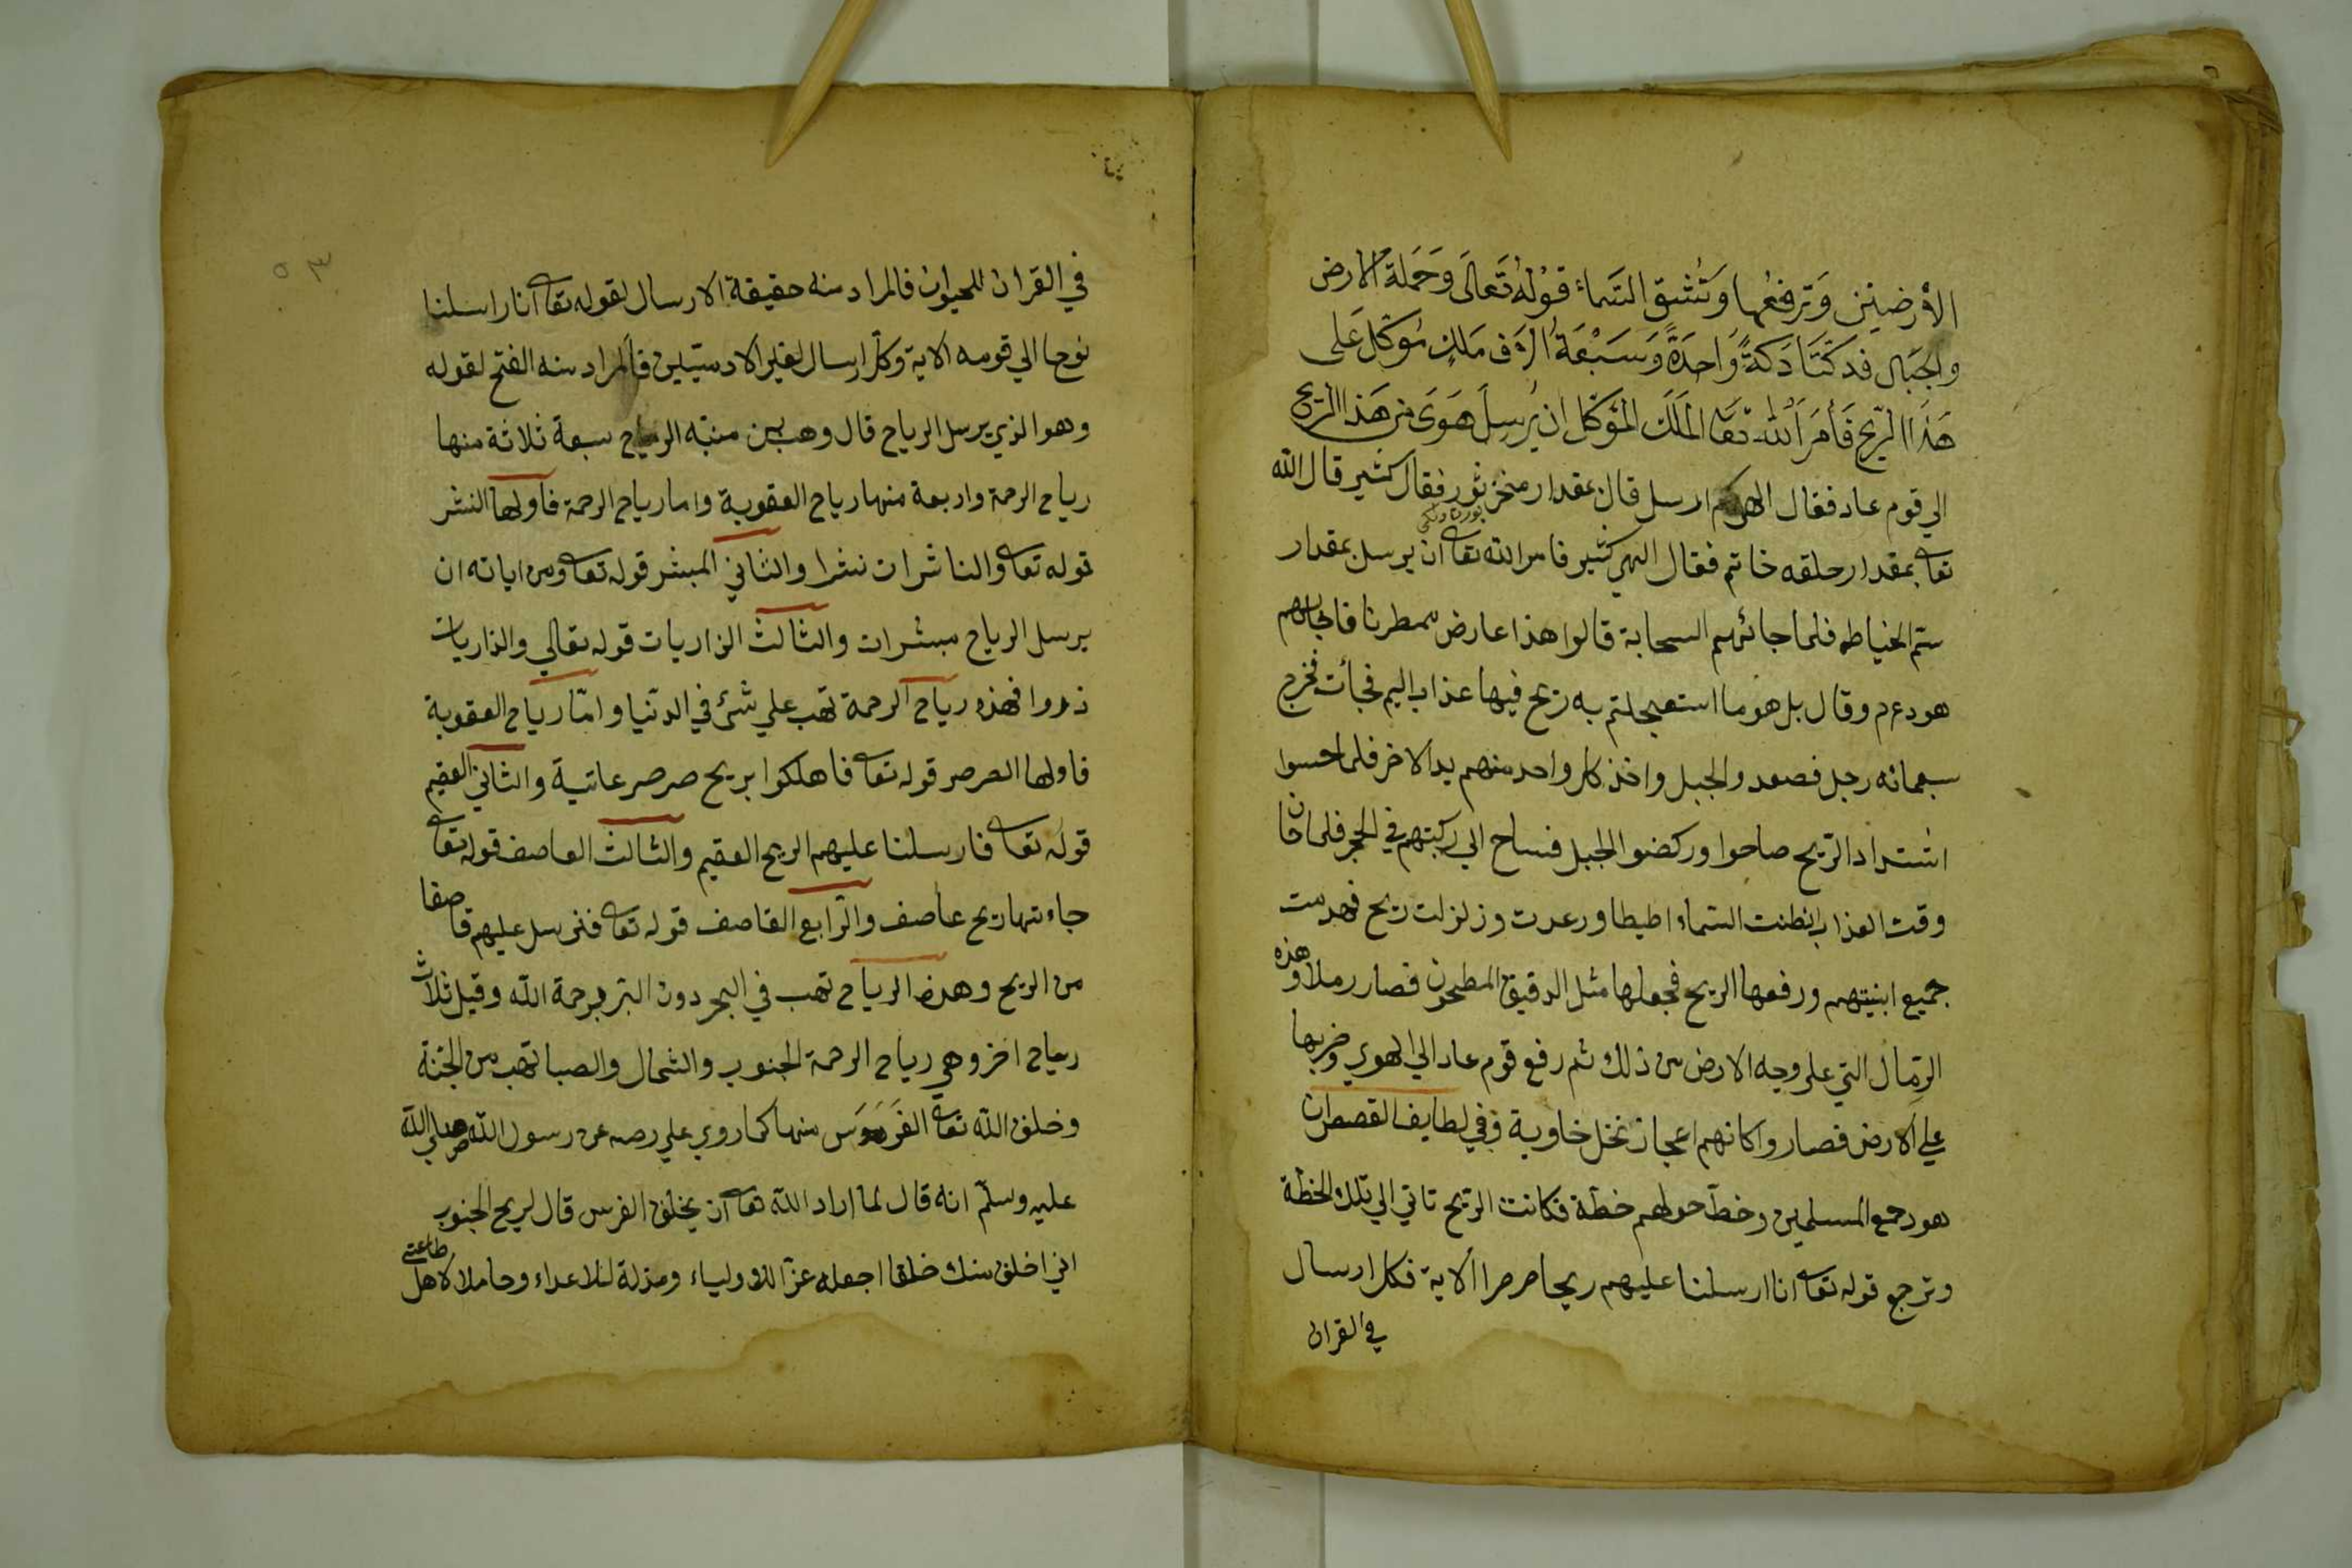 الأرضينن وَترفعُها وَتُشتق السَماء قَوْلهُ تَعالَى وَحَملة الارض
والجبَال فدكتَا دَكةً وَاحِدَةً وَسَبْعَةُ الٓاف مَلكٍ مُوَكّل عَلى
هَذا الرّيح فَأمَرَ الله تعا الملَك المؤكّل ان يُرسِلَ هَوَى من هَذا الريح
الي قوم عاد فقال الهي كم ارسل قال بمقدار منخر ثور فقال كثير قال الله
تعا بمقدار حلقه خاتم فقال الهي كثير فامر الله تعا ان يرسل بمقدار
ستم الخياط فلما جائتهم السحابة قالوا هذا عارض ممطرنا فاجابهم
هود عم وقال بل هو ما استعجلتم به ريح فيها عذاب اليم فجأت فخرج
سبعمائه رجل فصعدو الجبل واخذ كل واحد منهم يد الاخر فلما احسوا
اشتداد الرّيح صاحوا وركضوا الجبل فساح الي ركبتهم في الحجر فلما حان
وقت العذاب انطنت السّماء اطيطا ورعدت وزلزلت ريح فهدمت
جميع ابنيتهم ورفعها الريح فجعلها مثل الدقيق المطحون فصار رملا وهذه
الرّمال التي على وجه الارض من ذلك ثم رفع قوم عاد الي الهوي وضربها
علي الارض فصاروا كانهم اعجاز نخل خاوية وفي لطايف القصص ان
هود جمع المسلمين وخطّ حولهم خطّة فكانت الرّيح تاتي الي تلك الخطّة
وترجع قوله تعا انا ارسلنا عليهم ريحا صرصرا الاية فكل ارسال
في القران
٥٣
في القران للحيوان فالمراد منه حقيقة الارسال لقوله تعا انا ارسلنا
نوحا الي قومه الاية وكل ارسال لغير الادميّين فالمراد منه الفتح لقوله
وهو الذي يرسل الرياح قال وهب بن منبّه الرياح سبعة ثلاثة منها
رياح الرحمة واربعة منها رياح العقوبة واما رياح الرحمة فاولها النشر
قوله تعا والناشرات نشرا والثاني المبشر قوله تعا ومن اياته ان
يرسل الرياح مبشرات والثالث الذاريات قوله تعالي والذاريات
ذروا فهذه رياح الرحمة تهب علي شئ في الدّنيا وامّا رياح العقوبة
فاولها الصرصر قوله تعا فاهلكوا بريح صرصر عاتية والثاني العقيم
قوله تعا فارسلنا عليهم الريح العقيم والثالث العاصف قوله تعا
جاءتها ريح عاصف والرّابع القاصف قوله تعا فنرسل عليهم قاصفا
من الريح وهذه الرياح تهب في البحر دون البّر برحمة الله وقيل ثلاث
رياح اخر وهي رياح الرحمة الجنوب والشمال والصبا تهب من الجنّة
وخلق الله تعا الفَرَسَ منها كما روي علي رضه عن رسول الله صلي الله
عليه وسلّم انه قال لما اراد الله تعا ان يخلق الفرس قال لريح الجنوب
اني اخلق منك خلقا اجعله عزّا للاولياء ومذلة للاعداء وحاملا لاهل طاعتي